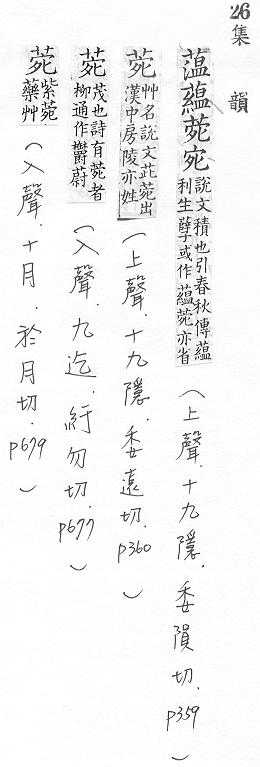 26
集韻
薀蘊菀宛 說文積也引春秋傳薀利生孽或作蘊菀亦省 (上聲.十九隱.委隕切.p359)
菀 艸名說文茈菀出漢中房陵亦姓 (上聲.十九隱.委遠切.p360)
菀 茂也詩有菀者柳通作鬱蔚 (入聲.九迄.紆勿切.p677)
菀 紫菀藥艸 (入聲.十月.於月切.p679)